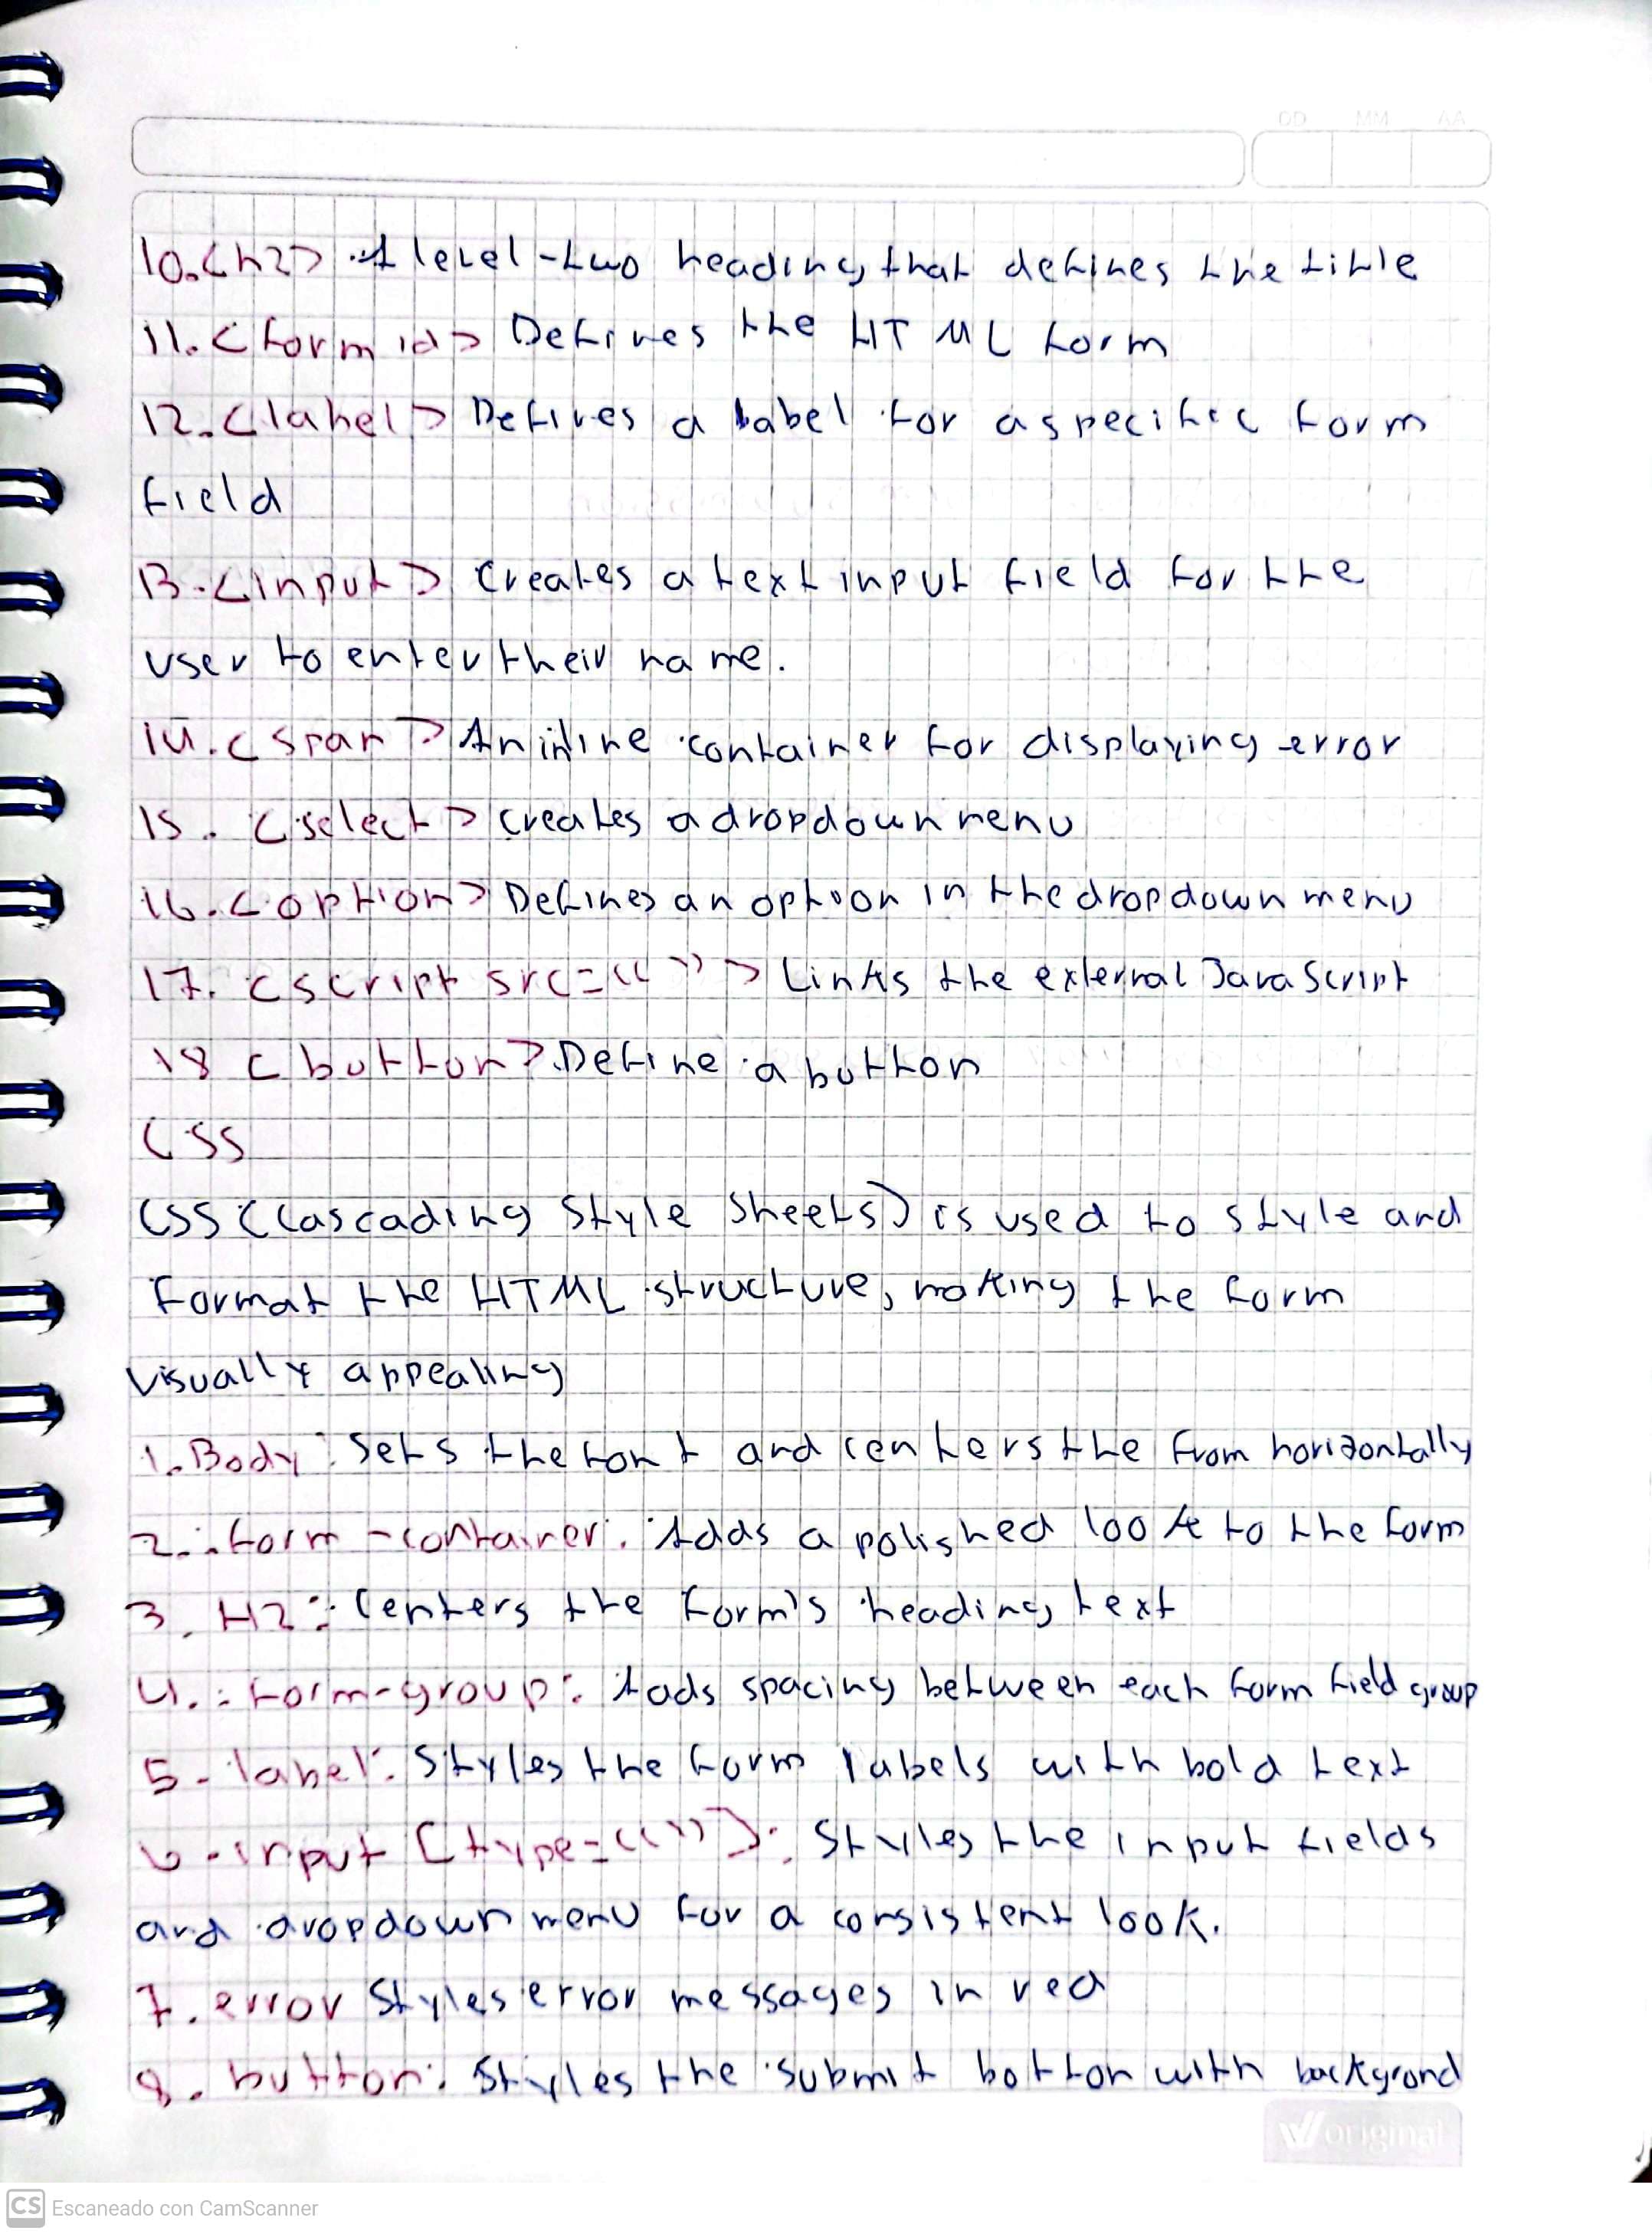 DD MM AA
10.<h2> A level-two heading that defines the title
11.<form id> Defines the HTML form
12.<label> Defines a label for a specific form
field
13.<input> Creates a text input field for the
user to enter their name.
14.<span> An inline container for displaying error
15. <select> creates a dropdown menu
16.<option> Defines an option in the dropdown menu
17. <script src=“ ”> Links the external JavaScript
18 <button> Define a button
CSS
CSS (Cascading Style Sheets) is used to style and
format the HTML structure, making the form
visually appealing
1. Body: Sets the font and centers the from horizontally
2. .form-container: Adds a polished look to the form
3. H2: Centers the form's heading text
4. .form-group: Adds spacing between each form field group
5. label: Styles the form labels with bold text
6. input [type=“ ”]: Styles the input fields
and dropdown menu for a consistent look.
7. error Styles error messages in red
8. button: Styles the submit botton with backgrond
original
CS Escaneado con CamScanner